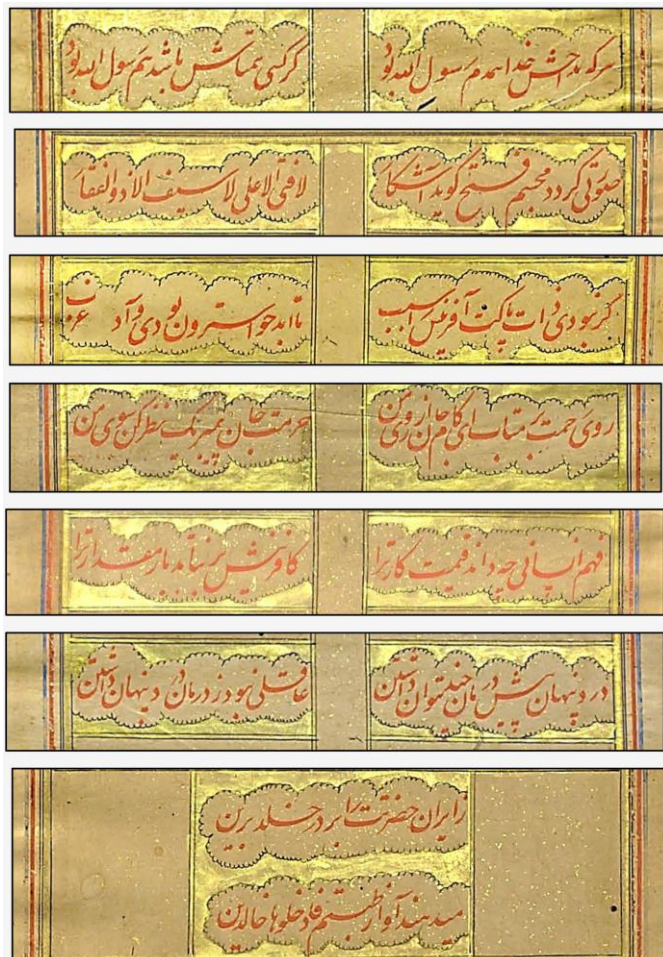 هرکه مداحش خدا همدم رسول الله بود گر کسی همتاش باشد هم رسول الله بود
صورتی گردد مجسم فتح گوید آشکار لافتی الا علی لا سیف الا ذو الفقار
گر نبودی ذات پاکت آفرینش را سبب تا ابد حوا سترون بودی و آدم عزب
روی رحمت بر متاب ای کام جان از روی من حرمت جان پیمبر یک نظر کن سوی من
فهم انسانی چه داند قیمت کار ترا کافرینش بر نتابد بار مقدار ترا
درد پنهان پیش درمان چند بتوان داشتن عاقلی نبود ز درمان درد پنهان داشتن
زایران حضرتت را بر در خلد برین
میدهند آواز طبتم فادخلوها خالدین